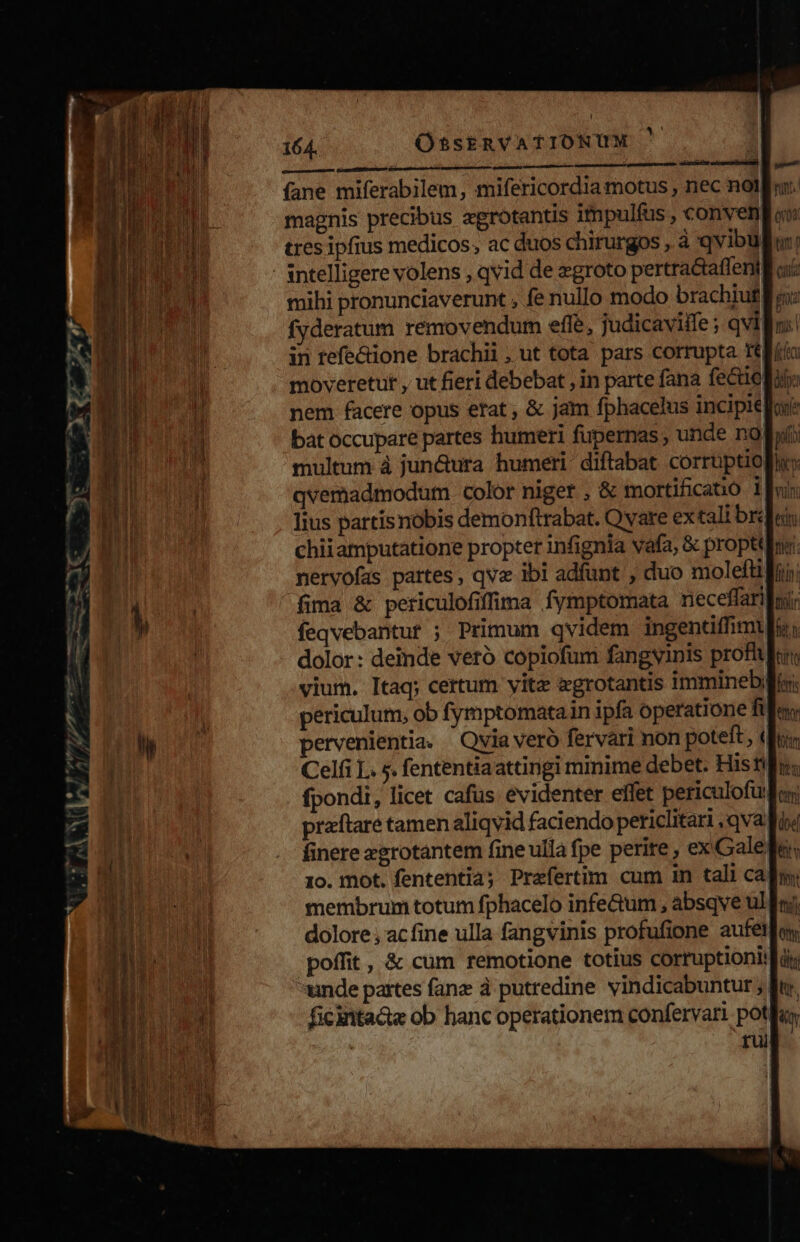 164 OBSERVATIONUM
ſane miſerabilem, miſericordia motus, nec non
magnis precibus ægrotantis impulſus, conven
tres ipſius medicos, ac duos chirurgos, à qvibu
intelligere volens, qvid de ægroto pertractaſſent
mihi pronunciaverunt, ſe nullo modo brachiu
ſyderatum removendum eſſe, judicaviſſe; qvi
in refectione brachii, ut tota pars corrupta re
moveretur, ut fieri debebat, in parte ſana ſectio
nem facere opus erat, & jam ſphacelus incipie
bat occupare partes humeri ſupernas, unde no
multum à junctura humeri diſtabat corruptio
qvemadmodum color niger, & mortificatio i
lius partis nobis demonſtrabat. Qvare ex tali bra
chii amputatione propter inſignia vaſa, & propte
nervoſas partes, qvæ ibi adſunt, duo moleſti
ſima & periculoſiſſima ſymptomata neceſſari
ſeqvebantur; Primum qvidem ingentiſſimu
dolor: deinde verò copioſum ſangvinis proflu
vium. Itaq; certum vitæ ægrotantis immineb
periculum, ob ſymptomata in ipſa operatione ſu
pervenientia. Qvia verò ſervari non poteſt,
Celſi L. 5. ſententia attingi minime debet. His r
ſpondi, licet caſus evidenter eſſet periculoſu
præſtare tamen aliqvid faciendo periclitari, qva
ſinere ægrotantem ſine ulla ſpe perire, ex Gale
10. mot. ſententia; Præſertim cum in tali ca
membrum totum ſphacelo infectum, absqve ul
dolore, ac ſine ulla ſangvinis profuſione aufer
poſſit, & cum remotione totius corruptioni
unde partes ſanæ à putredine vindicabuntur,
ſic intactæ ob hanc operationem conſervari pot
rui